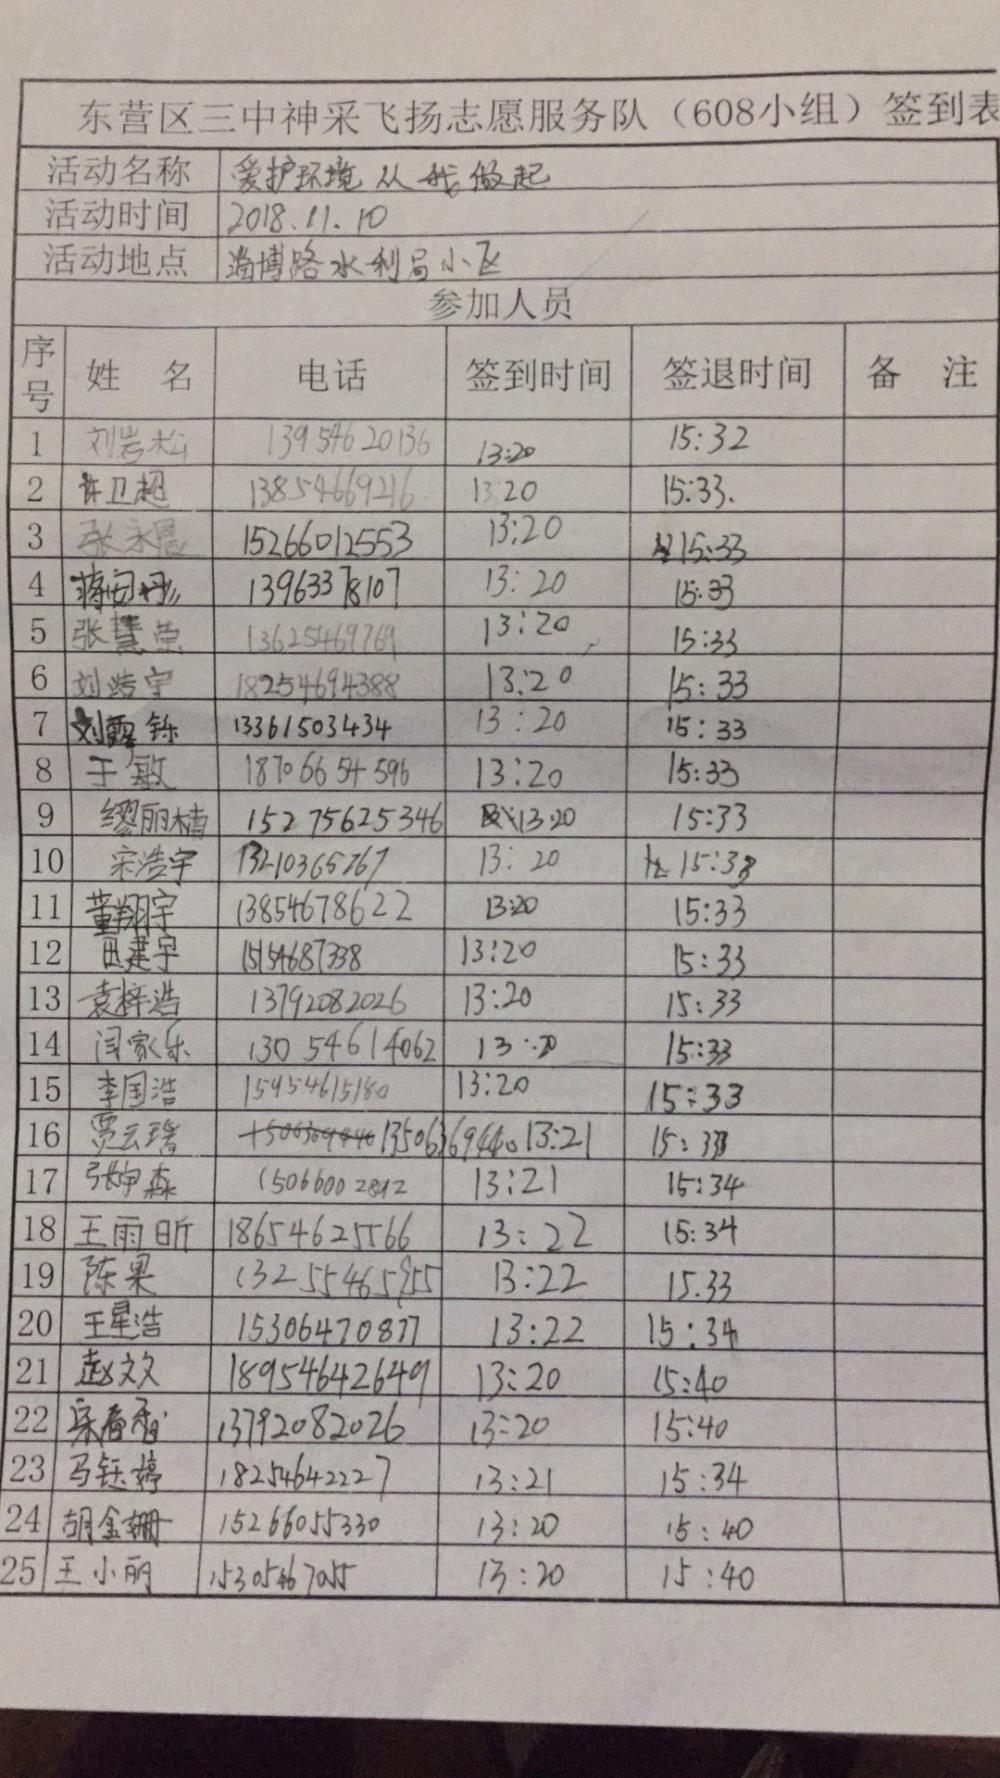 东营区三中神采飞扬志愿服务队（608小组）签到表
活动名称 爱护环境 从我做起
活动时间 2018.11.10
活动地点 淄博路水利局小区
参加人员
序号 姓 名 电话 签到时间 签退时间 备 注
1 刘岩松 13954620136 13:20 15:32
2 许卫超 13854669216 13:20 15:33.
3 张永晨 15266012553 13:20 15:33
4 蒋安彤 13963378107 13:20 15:33
5 张慧莹 13625469769 13:20 15:33
6 刘浩宇 18254694388 13:20 15:33
7 刘露铄 13361503434 13:20 15:33
8 于敏 18706654596 13:20 15:33
9 缪丽楠 15275625346 13:20 15:33
10 宋浩宇 13210365767 13:20 15:33
11 董翔宇 13854678622 13:20 15:33
12 田建宇 15154687338 13:20 15:33
13 袁梓浩 13792082026 13:20 15:33
14 闫家乐 13054614062 13:20 15:33
15 李国浩 15954615180 13:20 15:33
16 贾云瑞 13506369440 13:21 15:33
17 张宇森 15066002812 13:21 15:34
18 王雨昕 18654625566 13:22 15:34
19 陈果 13255465955 13:22 15.33
20 王星浩 15306470877 13:22 15:34
21 赵文文 18954642649 13:20 15:40
22 宋春香 13792082026 13:20 15:40
23 马钰婷 18254642227 13:21 15:34
24 胡金珊 15266055330 13:20 15:40
25 王小丽 15305467055 13:20 15:40